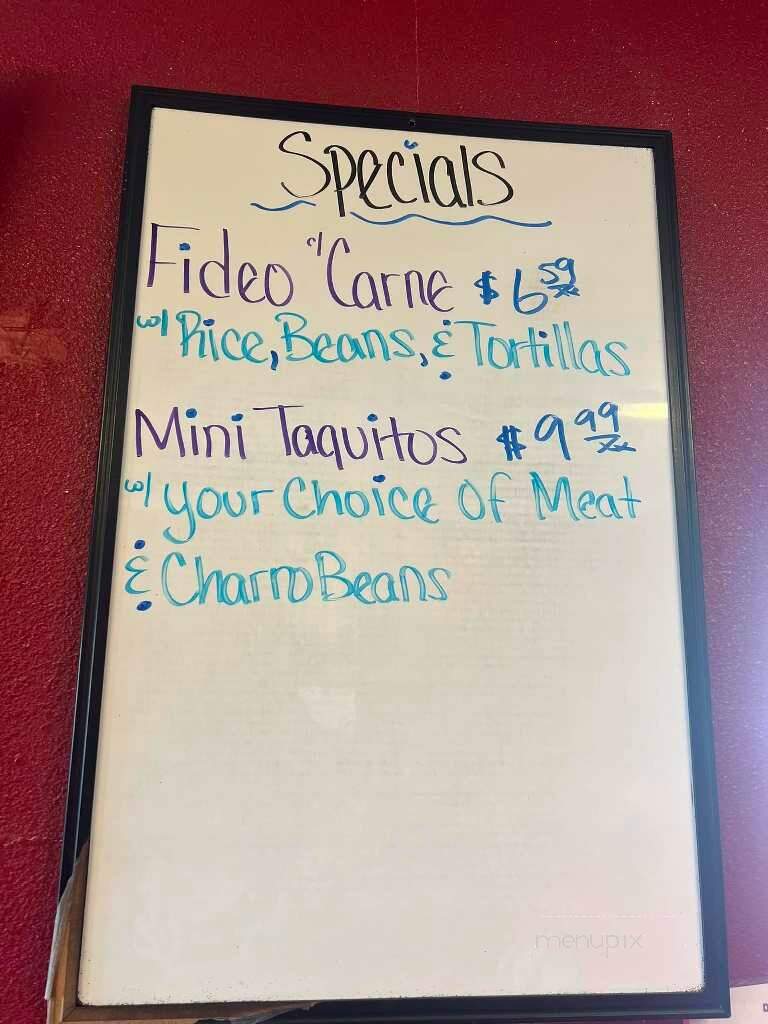 Specials
Fideo c/ Carne $6.59
w/ Rice, Beans, & Tortillas
Mini Taquitos $9.99
w/ your Choice Of Meat
& Charro Beans
menupix